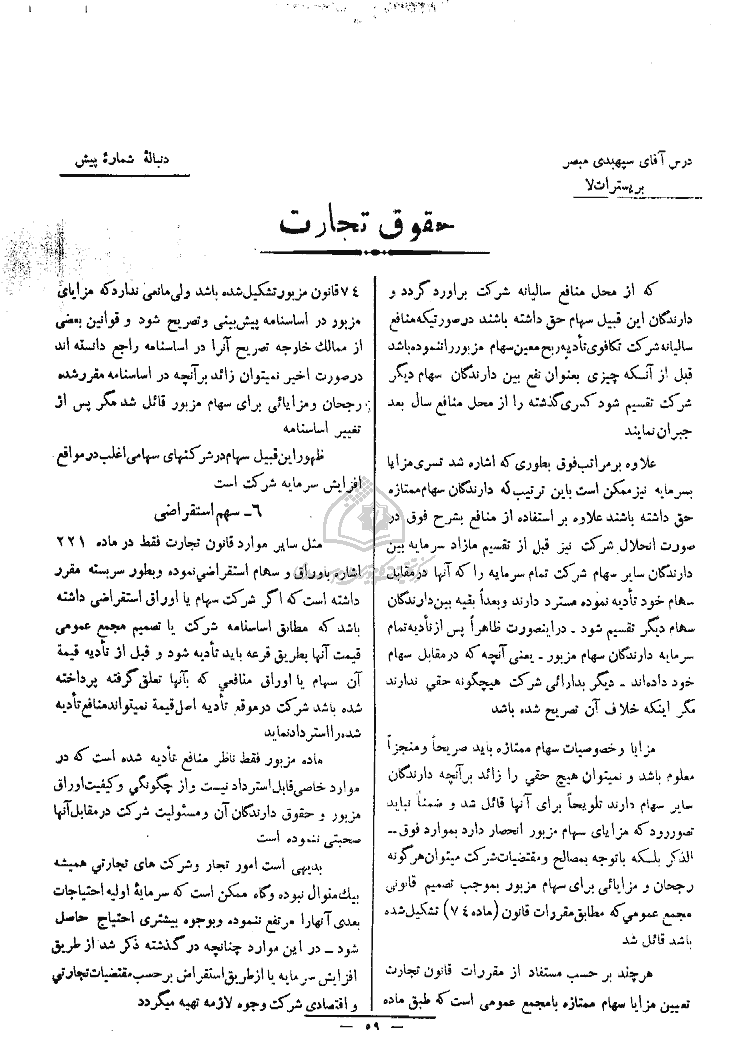 درس آقای سپهبدی مبصر
بریسترات‌لا
دنبالهٔ شمارهٔ پیش
حقوق تجارت
که از محل منافع سالیانه شرکت برآورد گردد و
دارندگان این قبیل سهام حق داشته باشند درصورتیکه منافع
سالیانه شرکت تکافوی تأدیه ربح معین سهام مزبور را ننموده باشد
قبل از آنکه چیزی بعنوان نفع بین دارندگان سهام دیگر
شرکت تقسیم شود کسری گذشته را از محل منافع سال بعد
جبران نمایند
علاوه بر مراتب فوق بطوری که اشاره شد تسری مزایا
بسرمایه نیز ممکن است باین ترتیب که دارندگان سهام ممتازه
حق داشته باشند علاوه بر استفاده از منافع بشرح فوق در
صورت انحلال شرکت نیز قبل از تقسیم مازاد سرمایه بین
دارندگان سایر سهام شرکت تمام سرمایه را که آنها در مقابل
سهام خود تأدیه نموده مسترد دارند و بعداً بقیه بین دارندگان
سهام دیگر تقسیم شود ـ در اینصورت ظاهراً پس از تأدیه تمام
سرمایه دارندگان سهام مزبور ـ یعنی آنچه که در مقابل سهام
خود داده‌اند ـ دیگر بدارائی شرکت هیچگونه حقی ندارند
مگر اینکه خلاف آن تصریح شده باشد
مزایا و خصوصیات سهام ممتازه باید صریحاً و منجزاً
معلوم باشد و نمیتوان هیچ حقی را زائد بر آنچه دارندگان
سایر سهام دارند تلویحاً برای آنها قائل شد و ضمناً نباید
تصور رود که مزایای سهام مزبور انحصار دارد بموارد فوق ـ
الذکر بلکه باتوجه بمصالح و مقتضیات شرکت میتوان هرگونه
رجحان و مزایائی برای سهام مزبور بموجب تصمیم قانونی
مجمع عمومی که مطابق مقررات قانون (ماده ۷۴) تشکیل شده
باشد قائل شد
هرچند بر حسب مستفاد از مقررات قانون تجارت
تعیین مزایا سهام ممتازه بامجمع عمومی است که طبق ماده
۷۴ قانون مزبور تشکیل شده باشد ولی مانعی ندارد که مزایای
مزبور در اساسنامه پیش‌بینی و تصریح شود و قوانین بعضی
از ممالک خارجه تصریح آنرا در اساسنامه راجع دانسته اند
درصورت اخیر نمیتوان زائد بر آنچه در اساسنامه مقرر شده
رجحان و مزایائی برای سهام مزبور قائل شد مگر پس از
تغییر اساسنامه
ظهور این قبیل سهام در شرکتهای سهامی اغلب در مواقع
افزایش سرمایه شرکت است
۶ـ سهم استقراضی
مثل سایر موارد قانون تجارت فقط در ماده ۲۲۱
اشاره باوراق و سهام استقراضی نموده وبطور سربسته مقرر
داشته است که اگر شرکت سهام یا اوراق استقراضی داشته
باشد که مطابق اساسنامه شرکت یا تصمیم مجمع عمومی
قیمت آنها بطریق قرعه باید تأدیه شود و قبل از تأدیه قیمة
آن سهام یا اوراق منافعی که بآنها تعلق گرفته پرداخته
شده باشد شرکت در موقع تأدیه اصل قیمة نمیتواند منافع تأدیه
شده را استرداد نماید
ماده مزبور فقط ناظر منافع تأدیه شده است که در
موارد خاصی قابل استرداد نیست و از چگونگی و کیفیت اوراق
مزبور و حقوق دارندگان آن و مسئولیت شرکت در مقابل آنها
صحبتی ننموده است
بدیهی است امور تجار وشرکت های تجارتی همیشه
بیك منوال نبوده وگاه ممکن است که سرمایهٔ اولیه احتیاجات
بعدی آنها را مرتفع ننموده وبوجوه بیشتری احتیاج حاصل
شود ـ در این موارد چنانچه در گذشته ذکر شد از طریق
افزایش سرمایه یا از طریق استقراض بر حسب مقتضیات تجارتی
و اقتصادی شرکت وجوه لازمه تهیه میگردد
— ۵۹ —